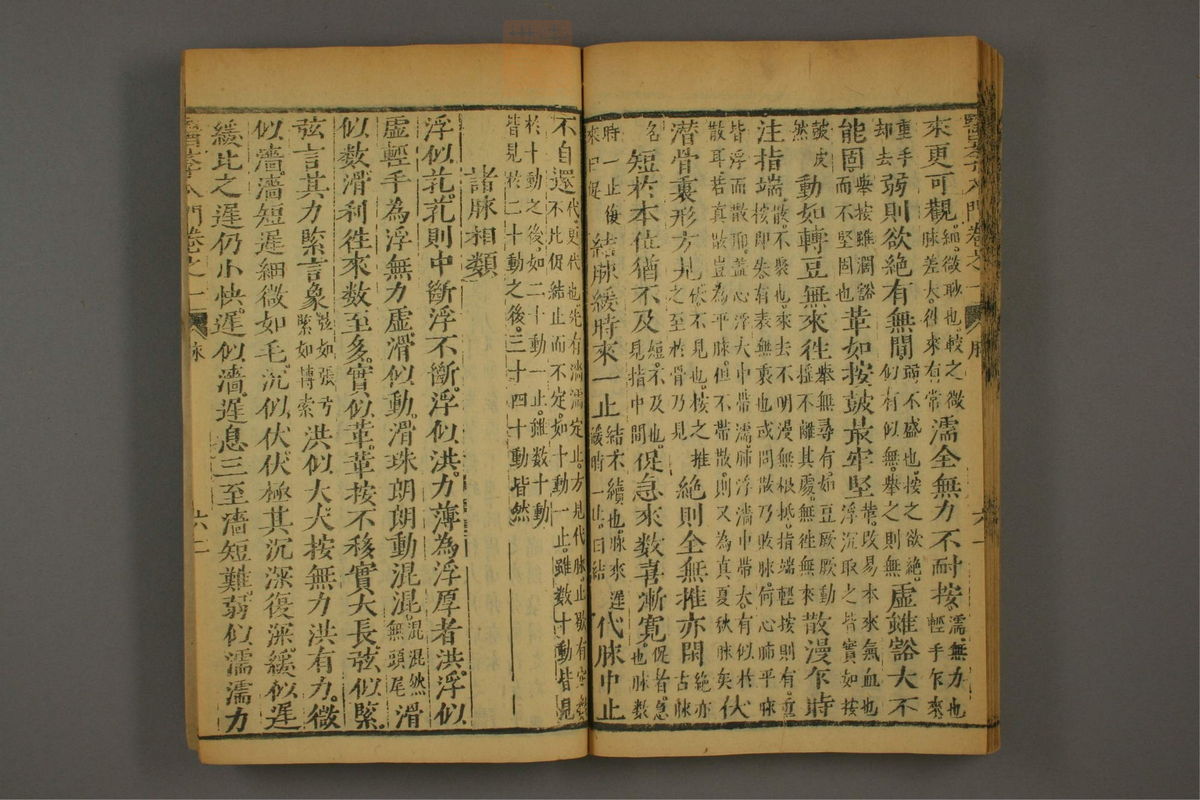 來更可觀細微眇也較之微脉差大徃來有常濡全無力不耐按濡無力也輕手乍來
重手却去弱則欲絶有無間弱不盛也按之欲絶似有似無舉之則無虛雖豁大不
能固舉按雖濶豁而不堅固也革如按鼓最牢堅革改易本來氣血也浮沉取之皆實如按
鼓皮然動如轉豆無來徃舉無尋有如豆厥厥動揺不離其處無徃無來散漫乍時
注指端散不聚也來去不明漫無根抵指端輕按則有重按即失有表無裏也或問散乃敗脉何心肺平脉
皆浮而散耶盖心浮大中帶濡肺浮濇中帶大有似於散耳若真散豈為平脉但不帶散則又為真夏秋脉矣伏
潜骨裏形方見伏不見也按之至於骨乃見推絶則全無推亦閑絶亦古脉
名短於本位猶不及短不及也見指中間促急來数喜漸寛促者急也脉数
時一止復來曰促結脉緩時來一止結不續也脉來遅緩時一止曰結代脉中止
不自還代更代也先有濟濡定止方見代脉止歇有定数不比促結止而不定如十動一止雖数十動皆見
於十動之後如二十動一止雖数十動皆見於二十動之後三十四十動皆然
諸脉相類
浮似芤芤則中斷浮不斷浮似洪力薄為浮厚者洪浮似
虛輕手為浮無力虛滑似動滑珠朗朗動混混混混然無頭尾滑
似数滑利徃來数至多實似革革按不移實大長弦似緊
弦言其力緊言象弦如張弓緊如轉索洪似大大按無力洪有力微
似濇濇短遅細微如毛沉似伏伏極其沉深復深緩似遅
緩比之遅仍小快遅似濇遅息三至濇短難弱似濡濡力
醫學入門卷之一 脉 六二